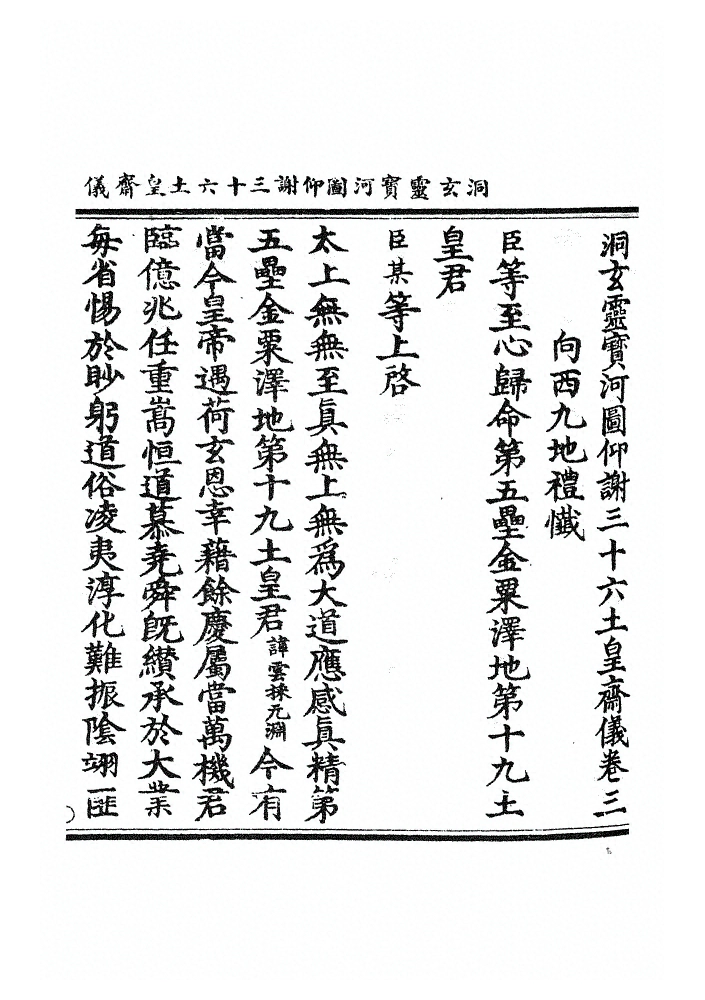 洞玄靈寶河圖仰謝三十六土皇齋儀
洞玄靈寶河圖仰謝三十六土皇齋儀卷三
向西九地禮懺
臣等至心歸命第五壘金粟澤地第十九土
皇君
臣某等上啓
太上無無至眞無上無爲大道應感眞精第
五壘金粟澤地第十九土皇君諱雲探元淵今有
當今皇帝遇荷玄恩幸藉餘慶屬當萬機君
臨億兆任重嵩恒道慕堯舜旣纘承於大業
每省惕於眇躬道俗凌夷淳化難振陰翊匪